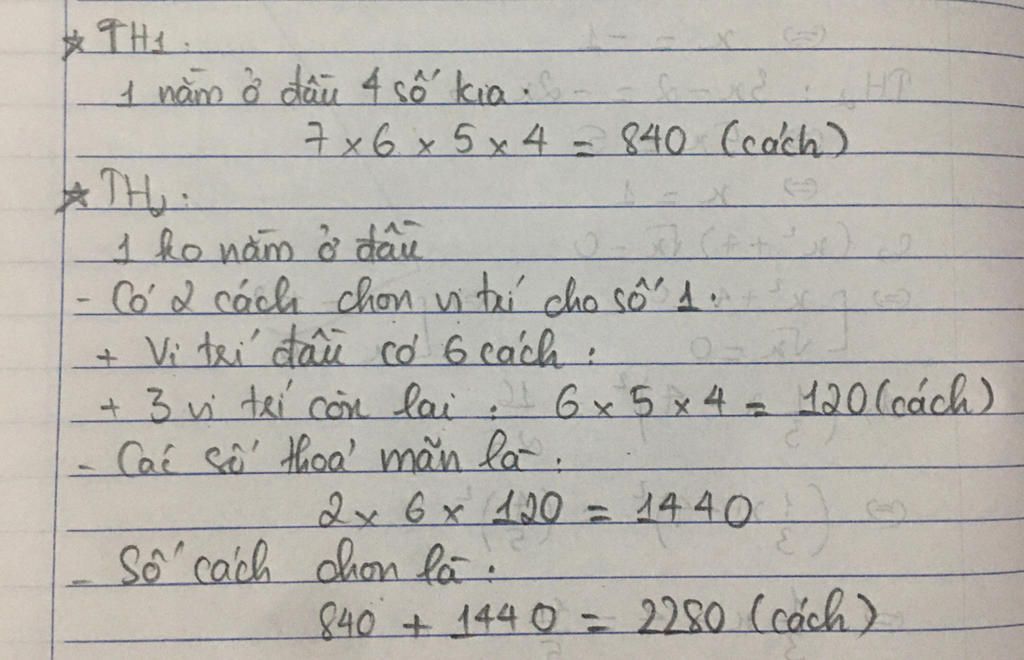 * TH1:
1 nằm ở đầu 4 số kia:
7 x 6 x 5 x 4 = 840 (cách)
* TH2:
1 ko nằm ở đầu
- Có 2 cách chọn vị trí cho số 1.
+ Vị trí đầu có 6 cách:
+ 3 vị trí còn lại: 6 x 5 x 4 = 120 (cách)
- Các số thoả mãn là:
2 x 6 x 120 = 1440
- Số cách chọn là:
840 + 1440 = 2280 (cách)